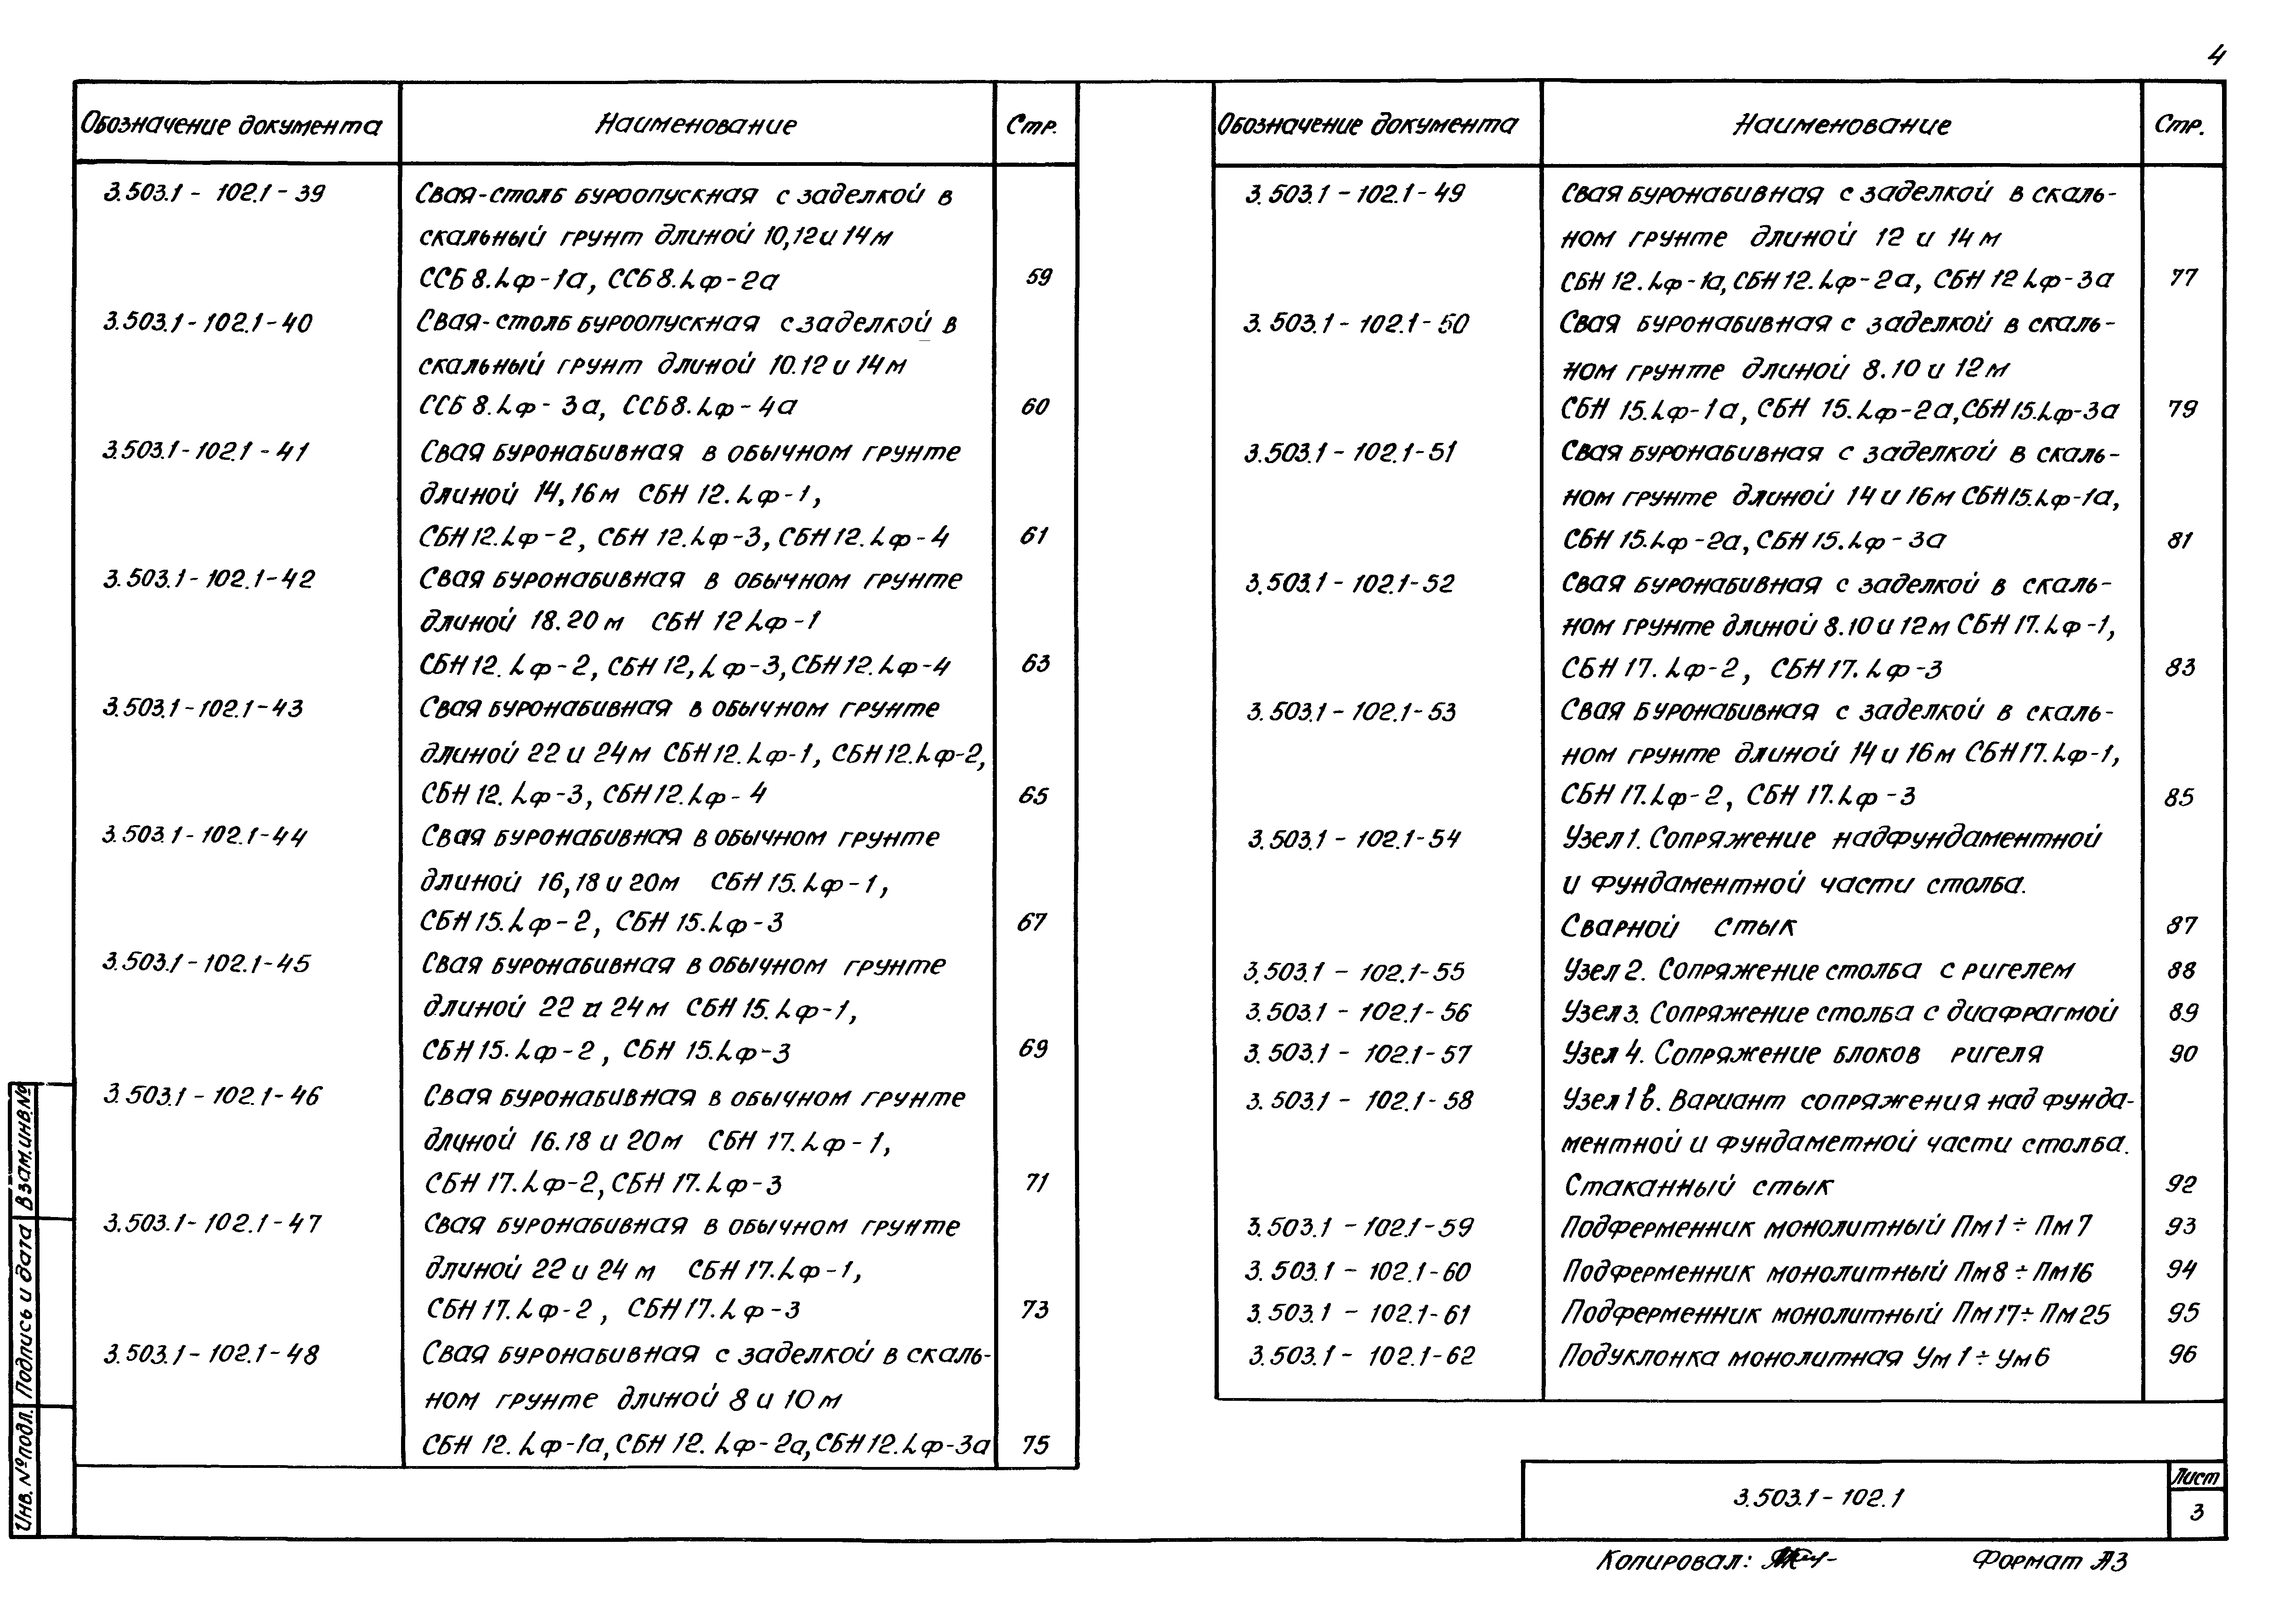 4
Обозначение документа Наименование Стр.
3.503.1 - 102.1 - 39 Свая-столб буроопускная с заделкой в
скальный грунт длиной 10, 12 и 14 м
ССБ 8.Lф-1а, ССБ 8.Lф-2а 59
3.503.1 - 102.1 - 40 Свая-столб буроопускная с заделкой в
скальный грунт длиной 10.12 и 14 м
ССБ 8.Lф-3а, ССБ 8.Lф-4а 60
3.503.1 - 102.1 - 41 Свая буронабивная в обычном грунте
длиной 14, 16 м СБН 12.Lф-1,
СБН 12.Lф-2, СБН 12.Lф-3, СБН 12.Lф-4 61
3.503.1 - 102.1 - 42 Свая буронабивная в обычном грунте
длиной 18.20 м СБН 12 Lф-1
СБН 12.Lф-2, СБН 12,Lф-3, СБН 12.Lф-4 63
3.503.1 - 102.1 - 43 Свая буронабивная в обычном грунте
длиной 22 и 24 м СБН 12.Lф-1, СБН 12.Lф-2,
СБН 12.Lф-3, СБН 12.Lф-4 65
3.503.1 - 102.1 - 44 Свая буронабивная в обычном грунте
длиной 16, 18 и 20 м СБН 15.Lф-1,
СБН 15.Lф-2, СБН 15.Lф-3 67
3.503.1 - 102.1 - 45 Свая буронабивная в обычном грунте
длиной 22 и 24 м СБН 15.Lф-1,
СБН 15.Lф-2, СБН 15.Lф-3 69
3.503.1 - 102.1 - 46 Свая буронабивная в обычном грунте
длиной 16.18 и 20 м СБН 17.Lф-1,
СБН 17.Lф-2, СБН 17.Lф-3 71
3.503.1 - 102.1 - 47 Свая буронабивная в обычном грунте
длиной 22 и 24 м СБН 17.Lф-1,
СБН 17.Lф-2, СБН 17.Lф-3 73
3.503.1 - 102.1 - 48 Свая буронабивная с заделкой в скаль-
ном грунте длиной 8 и 10 м
СБН 12.Lф-1а, СБН 12.Lф-2а, СБН 12.Lф-3а 75
Обозначение документа Наименование Стр.
3.503.1 - 102.1 - 49 Свая буронабивная с заделкой в скаль-
ном грунте длиной 12 и 14 м
СБН 12.Lф-1а, СБН 12.Lф-2а, СБН 12 Lф-3а 77
3.503.1 - 102.1 - 50 Свая буронабивная с заделкой в скаль-
ном грунте длиной 8.10 и 12 м
СБН 15.Lф-1а, СБН 15.Lф-2а, СБН 15.Lф-3а 79
3.503.1 - 102.1 - 51 Свая буронабивная с заделкой в скаль-
ном грунте длиной 14 и 16 м СБН 15.Lф-1а,
СБН 15.Lф-2а, СБН 15.Lф-3а 81
3.503.1 - 102.1 - 52 Свая буронабивная с заделкой в скаль-
ном грунте длиной 8.10 и 12 м СБН 17.Lф-1,
СБН 17.Lф-2, СБН 17.Lф-3 83
3.503.1 - 102.1 - 53 Свая буронабивная с заделкой в скаль-
ном грунте длиной 14 и 16 м СБН 17.Lф-1,
СБН 17.Lф-2, СБН 17.Lф-3 85
3.503.1 - 102.1 - 54 Узел 1. Сопряжение надфундаментной
и фундаментной части столба.
Сварной стык 87
3.503.1 - 102.1 - 55 Узел 2. Сопряжение столба с ригелем 88
3.503.1 - 102.1 - 56 Узел 3. Сопряжение столба с диафрагмой 89
3.503.1 - 102.1 - 57 Узел 4. Сопряжение блоков ригеля 90
3.503.1 - 102.1 - 58 Узел 1в. Вариант сопряжения над фунда-
ментной и фундаметной части столба.
Стаканный стык 92
3.503.1 - 102.1 - 59 Подферменник монолитный Пм 1 ÷ Пм 7 93
3.503.1 - 102.1 - 60 Подферменник монолитный Пм 8 ÷ Пм 16 94
3.503.1 - 102.1 - 61 Подферменник монолитный Пм 17 ÷ Пм 25 95
3.503.1 - 102.1 - 62 Подуклонка монолитная Ум 1 ÷ Ум 6 96
Взам.инв.№
Подпись и дата
Инв. № подл.
3.503.1 - 102.1
Лист
3
Копировал: Формат А3